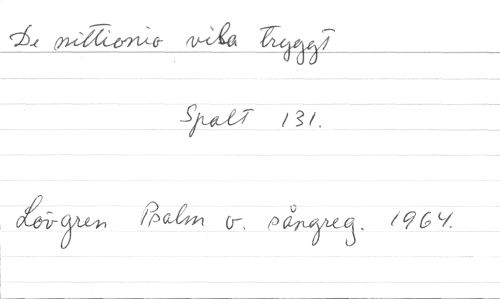 De nittionio vila tryggt
Spalt 131.
Lövgren Psalm o. sångreg. 1964.